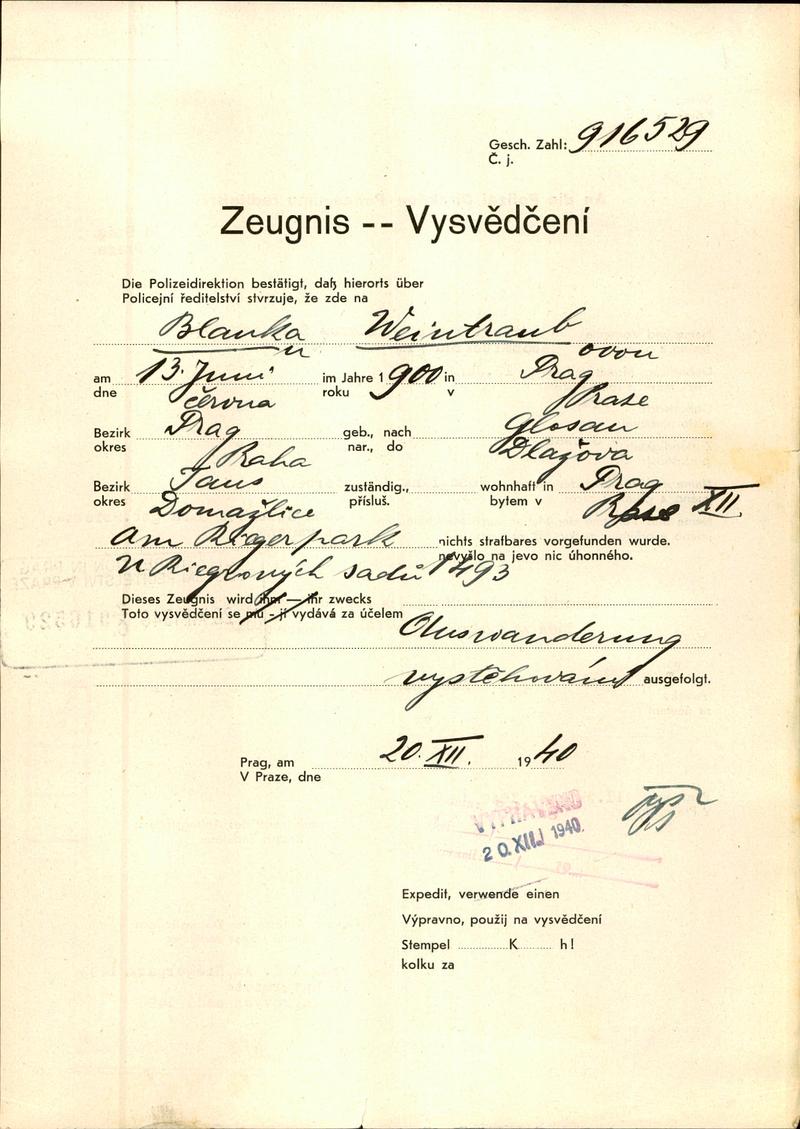 Gesch. Zahl: 916529
Č. j.
Zeugnis -- Vysvědčení
Die Polizeidirektion bestätigt, daß hierorts über
Policejní ředitelství stvrzuje, že zde na
Blanka Weintraub
u ovou
am 13. Juni im Jahre 1900 in Prag
dne června roku v Praze
Bezirk Prag geb., nach Glosau
okres Praha nar., do Dlažova
Bezirk Taus zuständig., wohnhaft in Prag
okres Domažlice přísluš. bytem v Praze XII.
Am Riegerpark nichts strafbares vorgefunden wurde.
nevyšlo na jevo nic úhonného.
U Riegrových sadů 1493
Dieses Zeugnis wird ihm — ihr zwecks
Toto vysvědčení se mu - jí vydává za účelem
Auswanderung
vystěhování ausgefolgt.
Prag, am 20. XII. 1940
V Praze, dne
VYPRAVENO
20. XII. 1940
Expedit, verwende einen
Výpravno, použij na vysvědčení
Stempel K h!
kolku za